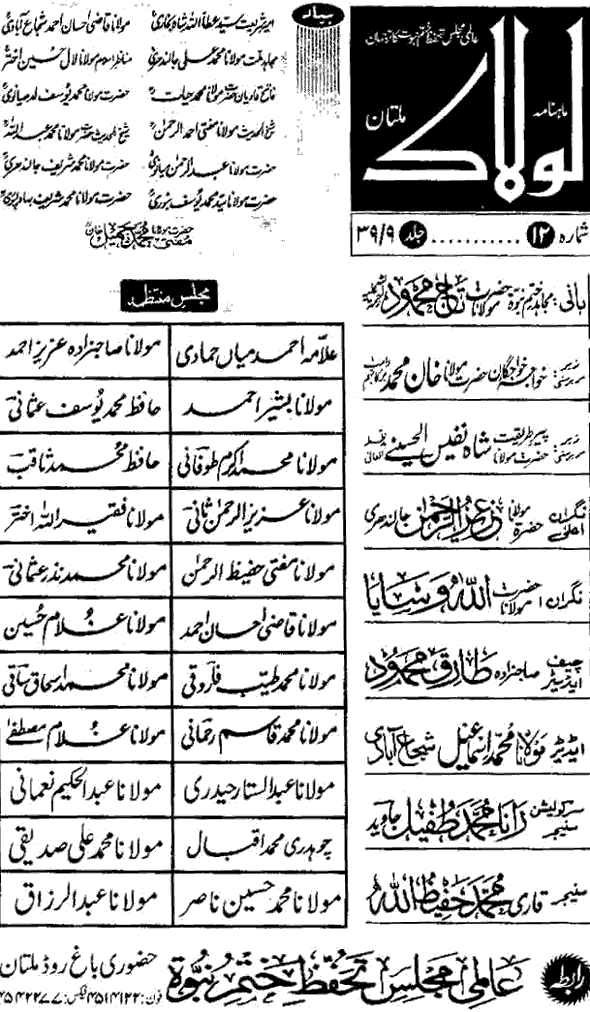 عالمی مجلس تحفظ ختم نبوت کا ترجمان
ماہنامہ
لولاک
ملتان
شمارہ ۱۲ ........... جلد ۳۹/۹
بیاد
امیر شریعت سید عطاء اللہ شاہ بخاریؒ
مولانا قاضی احسان احمد شجاع آبادیؒ
مجاہد ملت مولانا محمد علی جالندھریؒ
مناظر اسلام مولانا لال حسین اخترؒ
فاتح قادیان حضرت مولانا محمد حیاتؒ
حضرت مولانا محمد یوسف لدھیانویؒ
شیخ الحدیث مولانا مفتی احمد الرحمٰنؒ
شیخ الحدیث حضرت مولانا محمد عبداللہؒ
حضرت مولانا عبدالرحمٰن میانویؒ
حضرت مولانا محمد شریف جالندھریؒ
حضرت مولانا سید محمد یوسف بنوریؒ
حضرت مولانا محمد شریف بہاولپوریؒ
حضرت مولانا مفتی محمد جمیل خانؒ
بانی: مجاہد ختم نبوۃ حضرت مولانا تاج محمود
زیر سرپرستی: خواجہ خواجگان حضرت مولانا خان محمد
زیر سرپرستی: پیر طریقت حضرت مولانا شاہ نفیس الحسینی
نگران اعلیٰ: حضرۃ مولانا عزیز الرحمٰن جالندھری
نگران: حضرت مولانا اللہ وسایا
چیف ایڈیٹر: صاحبزادہ طارق محمود
ایڈیٹر: مولانا محمد اسماعیل شجاع آبادی
سرکولیشن منیجر: رانا محمد طفیل جاوید
منیجر: قاری محمد حفیظ اللہ
مجلس منتظمہ
علامہ احمد میاں حمادی
مولانا صاحبزادہ عزیز احمد
مولانا بشیر احمد
حافظ محمد یوسف عثمانی
مولانا محمد اکرم طوفانی
حافظ محمد ثاقب
مولانا عزیز الرحمٰن ثانی
مولانا فقیر اللہ اختر
مولانا مفتی حفیظ الرحمٰن
مولانا محمد نذر عثمانی
مولانا قاضی احسان احمد
مولانا غلام حسین
مولانا محمد طیب فاروقی
مولانا محمد اسحاق ساقی
مولانا محمد قاسم رحمانی
مولانا غلام مصطفےٰ
مولانا عبدالستار حیدری
مولانا عبدالحکیم نعمانی
چوہدری محمد اقبال
مولانا محمد علی صدیقی
مولانا محمد حسین ناصر
مولانا عبدالرزاق
رابطہ
عالمی مجلس تحفظ ختم نبوۃ
حضوری باغ روڈ ملتان
فون: ۴۵۱۴۱۲۲ فیکس: ۴۵۴۲۲۷۷